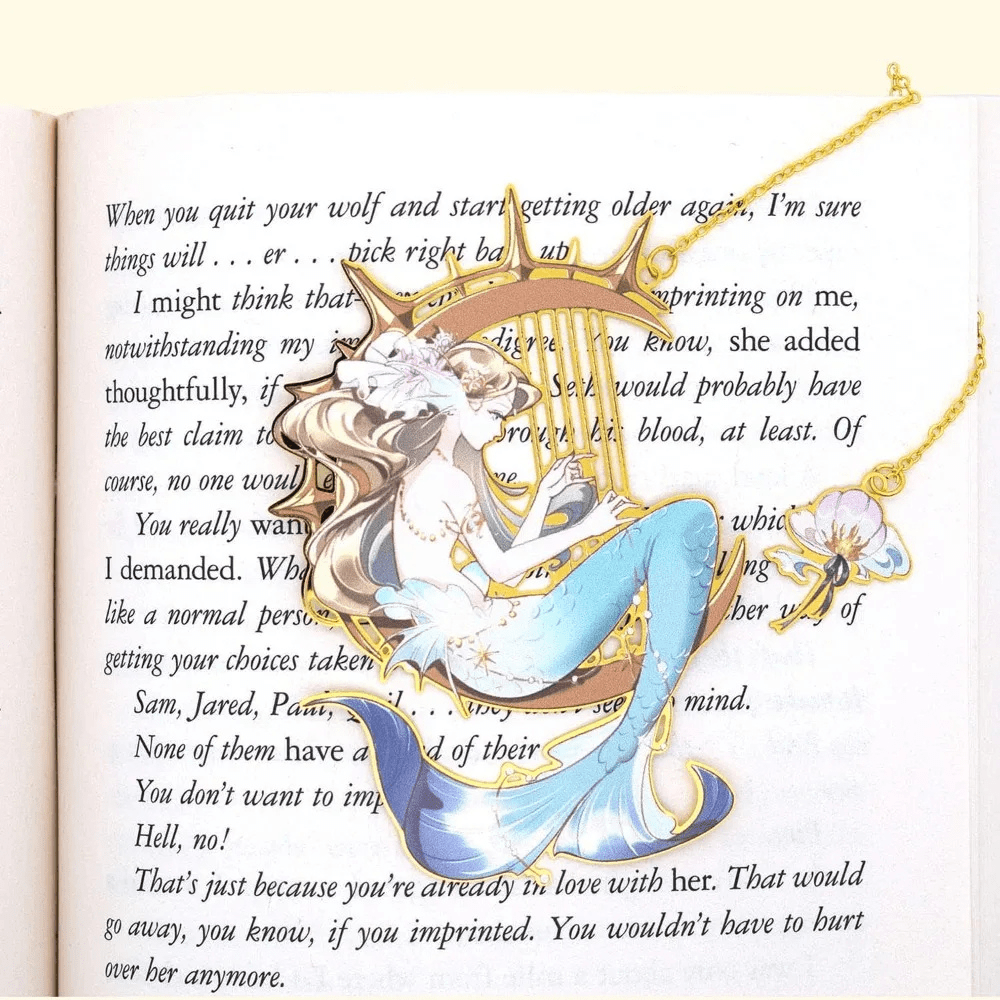 When you quit your wolf and start getting older again, I'm sure
things will . . . er . . . pick right ba up
I might think that- mprinting on me,
notwithstanding my im digree. You know, she added
thoughtfully, if Seth would probably have
the best claim to through his blood, at least. Of
course, no one would me.
You really want which
I demanded. Wha ling
like a normal person, her way of
getting your choices taken
Sam, Jared, Paul, Quil . . . they don't seem to mind.
None of them have a d of their
You don't want to imp
Hell, no!
That's just because you're already in love with her. That would
go away, you know, if you imprinted. You wouldn't have to hurt
over her anymore.